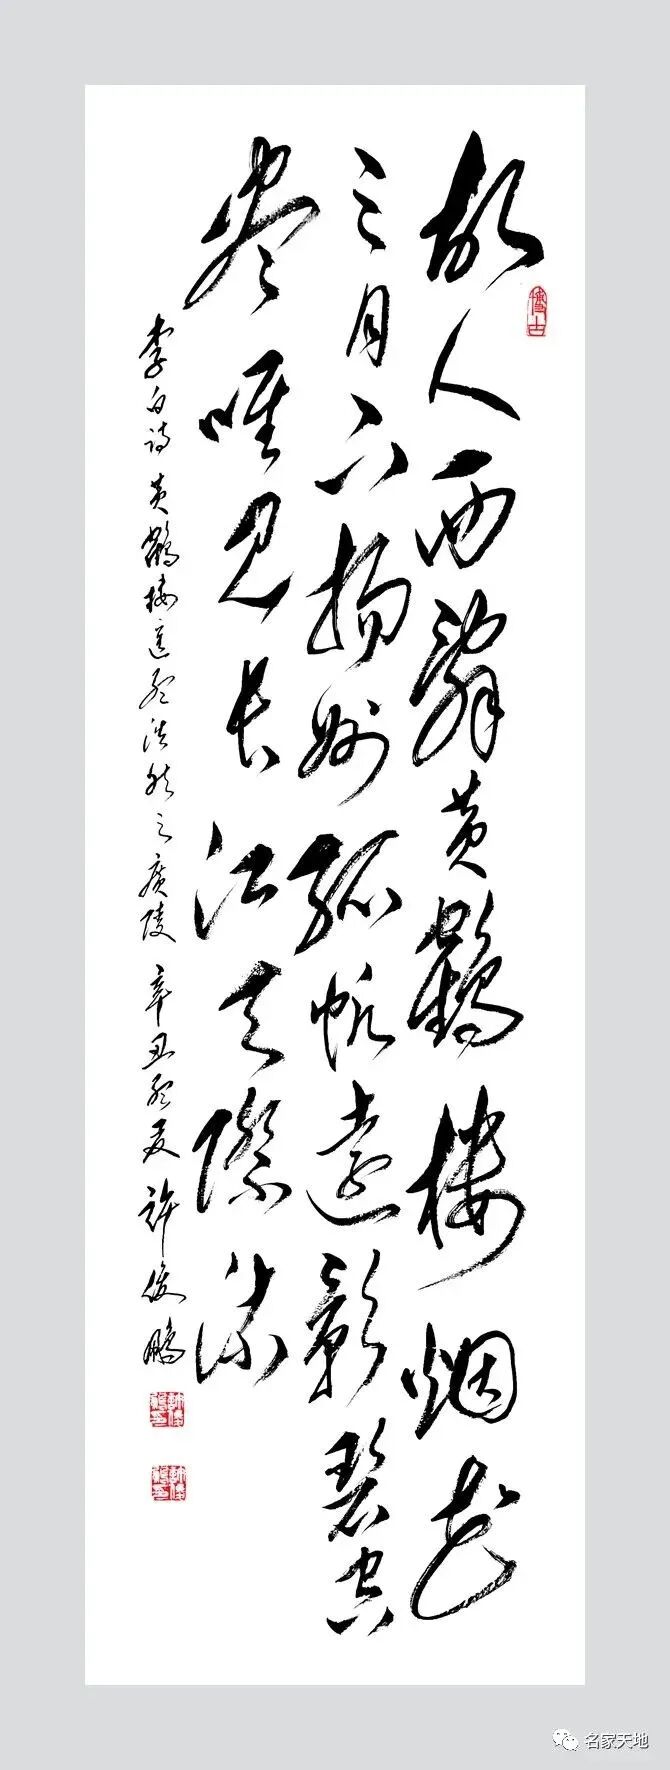 故人西辞黄鹤楼烟花
三月下扬州孤帆远影碧空
尽唯见长江天际流
李白诗黄鹤楼送孟浩然之廣陵辛丑孟夏许俊鹏
博古
名家天地